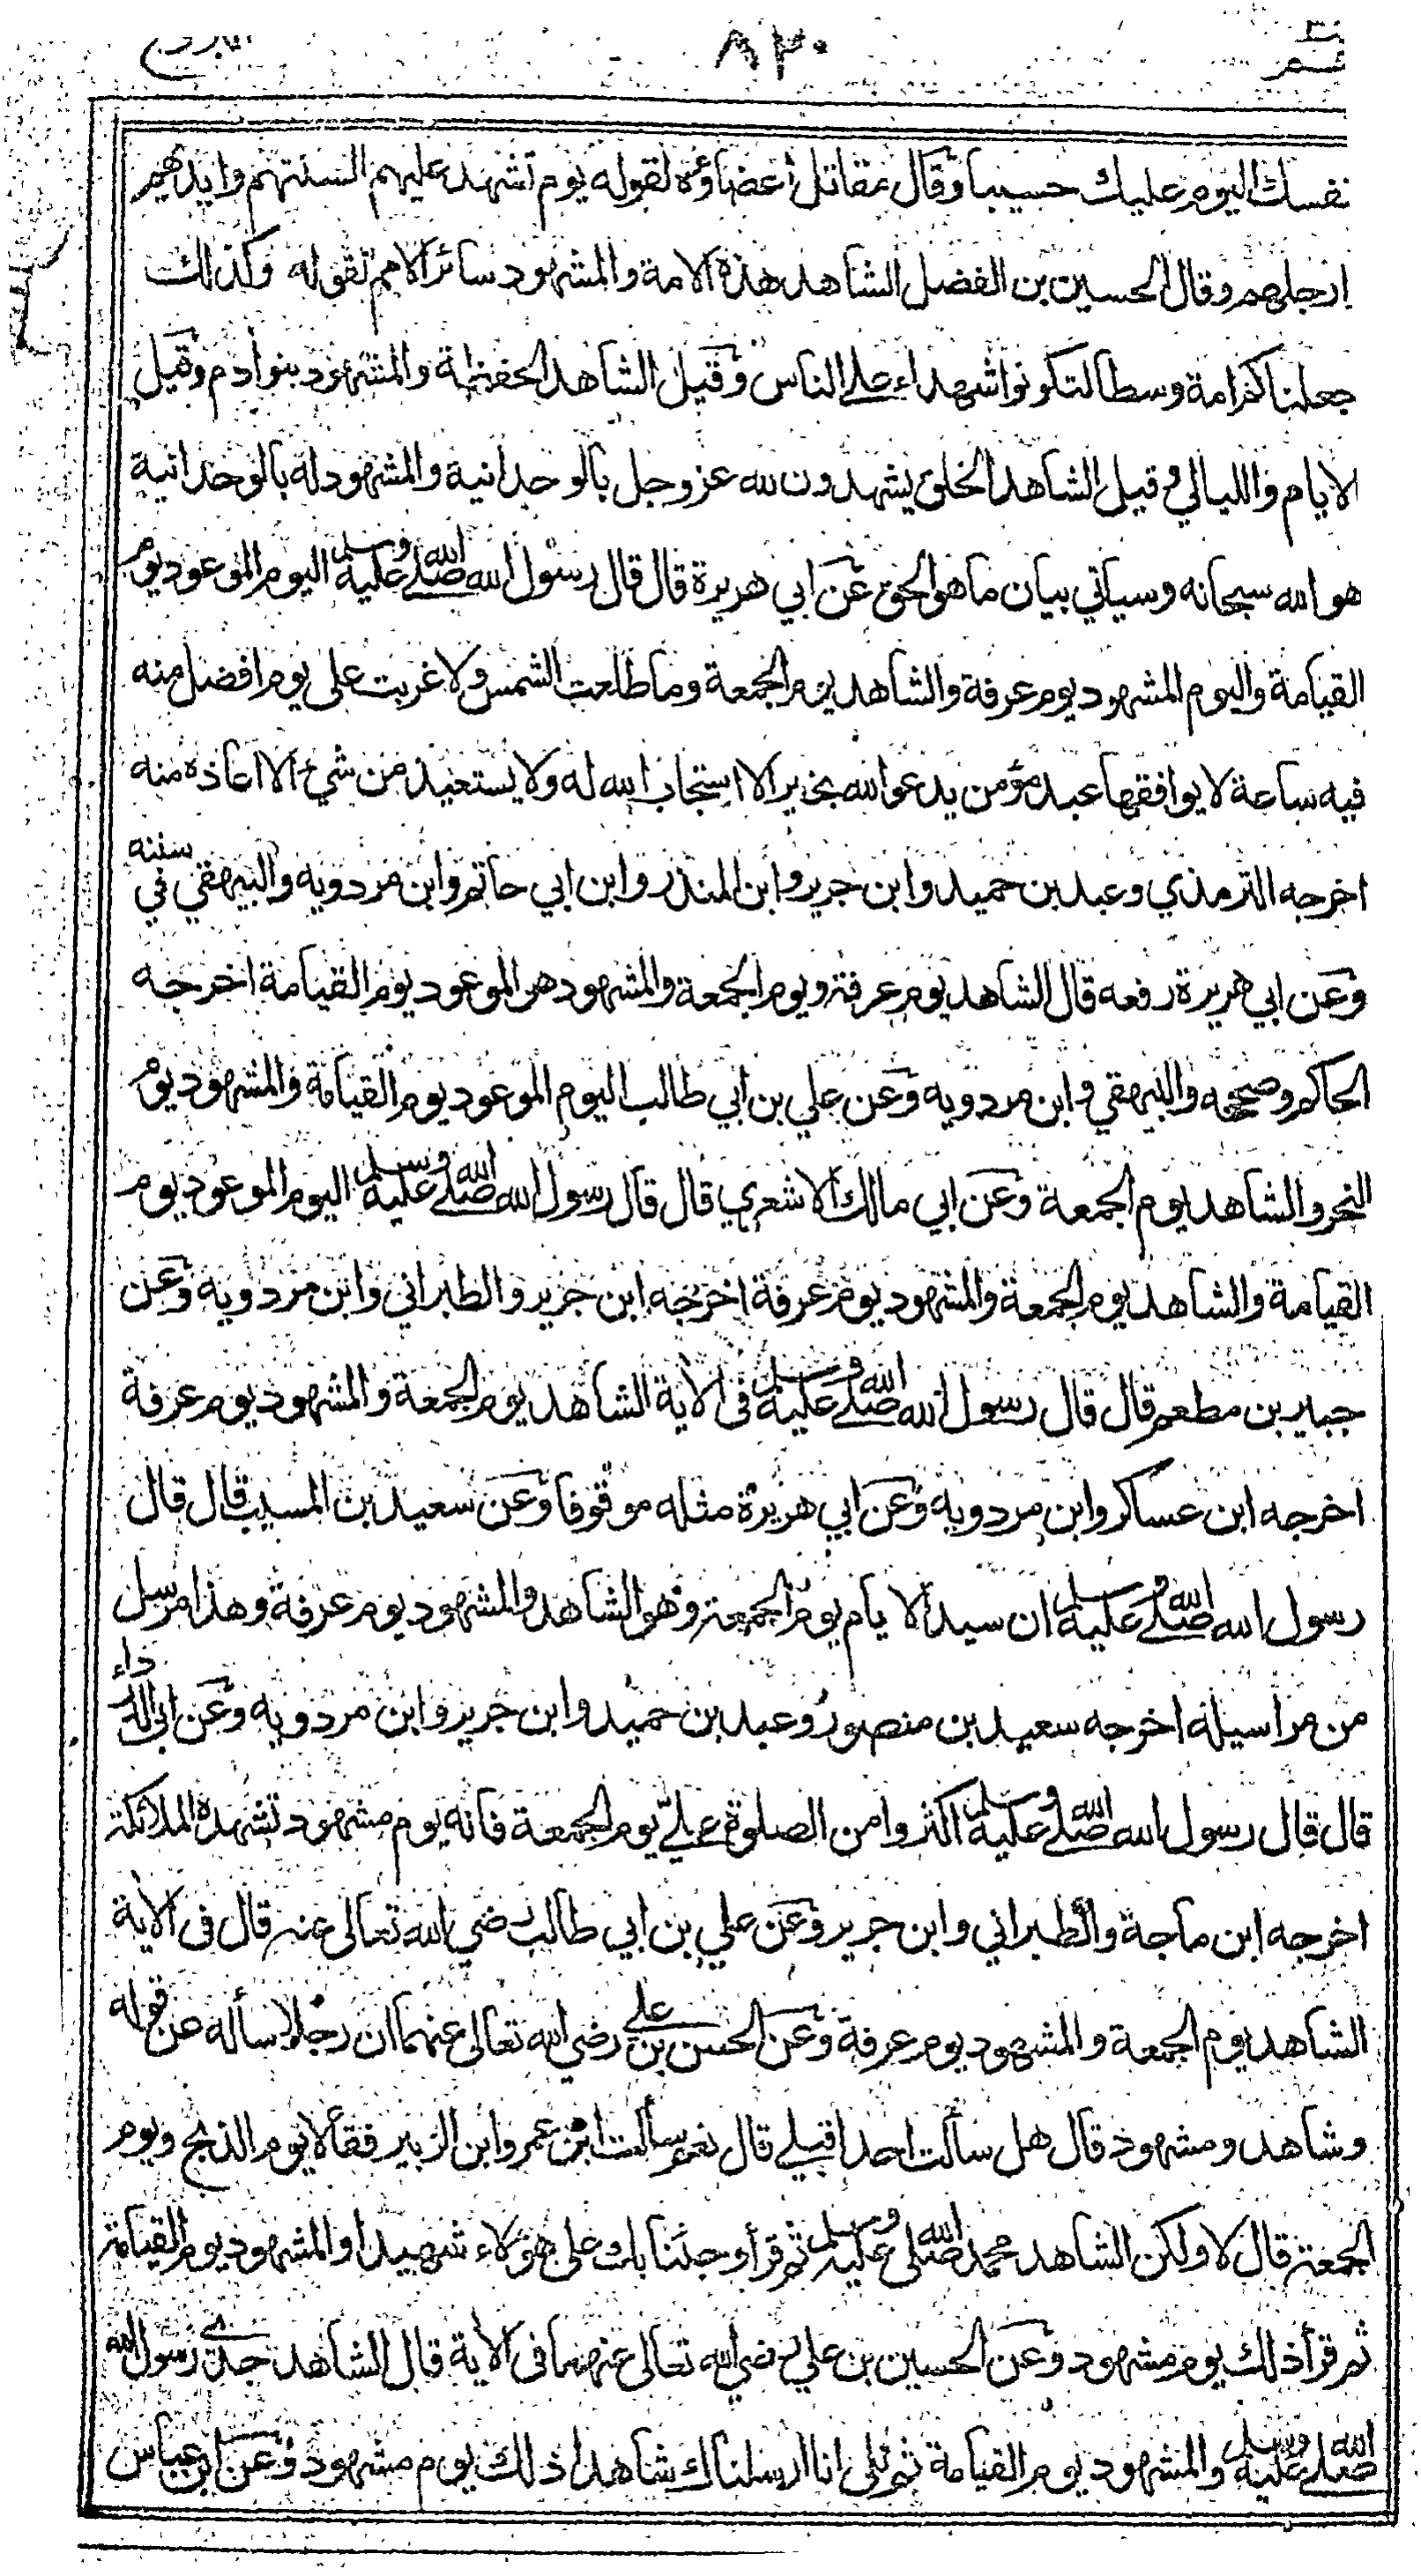 عم ٨٢٠ البروج
نفسك اليوم عليك حسيبا وقال مقاتل اعضاؤه لقوله يوم تشهد عليهم السنتهم وايديهم
ارجلهم وقال الحسين بن الفضل الشاهد هذه الامة والمشهود سائر الامم لقوله وكذلك
جعلناكم امة وسطا لتكونوا شهداء على الناس وقيل الشاهد الحفظة والمشهود بنو ادم وقيل
الايام والليالي وقيل الشاهد الخلق يشهدون لله عز وجل بالوحدانية والمشهود له بالوحدانية
هو الله سبحانه وسيأتي بيان ما هو الحق عن ابي هريرة قال قال رسول الله صلى الله عليه وسلم اليوم الموعود يوم
القيامة واليوم المشهود يوم عرفة والشاهد يوم الجمعة وما طلعت الشمس ولا غربت على يوم افضل منه
فيه ساعة لا يوافقها عبد مؤمن يدعو الله بخير الا استجاب الله له ولا يستعيذ من شيء الا اعاذه منه
اخرجه الترمذي وعبد بن حميد وابن جرير وابن المنذر وابن ابي حاتم وابن مردويه والبيهقي في سننه
وعن ابي هريرة رفعه قال الشاهد يوم عرفة ويوم الجمعة والمشهود هو الموعود يوم القيامة اخرجه
الحاكم وصححه والبيهقي وابن مردويه وعن علي بن ابي طالب اليوم الموعود يوم القيامة والمشهود يوم
النحر والشاهد يوم الجمعة وعن ابي مالك الاشعري قال قال رسول الله صلى الله عليه وسلم اليوم الموعود يوم
القيامة والشاهد يوم الجمعة والمشهود يوم عرفة اخرجه ابن جرير والطبراني وابن مردويه وعن
جبير بن مطعم قال قال رسول الله صلى الله عليه وسلم في الاية الشاهد يوم الجمعة والمشهود يوم عرفة
اخرجه ابن عساكر وابن مردويه وعن ابي هريرة مثله موقوفا وعن سعيد بن المسيب قال قال
رسول الله صلى الله عليه وسلم ان سيد الايام يوم الجمعة وهو الشاهد والمشهود يوم عرفة وهذا مرسل
من مراسيله اخرجه سعيد بن منصور وعبد بن حميد وابن جرير وابن مردويه وعن ابي الدرداء
قال قال رسول الله صلى الله عليه وسلم اكثروا من الصلوة علي يوم الجمعة فانه يوم مشهود تشهده الملائكة
اخرجه ابن ماجة والطبراني وابن جرير وعن علي بن ابي طالب رضي الله تعالى عنه قال في الاية
الشاهد يوم الجمعة والمشهود يوم عرفة وعن الحسن بن علي رضي الله تعالى عنهما ان رجلا سأله عن قوله
وشاهد ومشهود قال هل سألت احدا قبلي قال نعم سألت ابن عمر وابن الزبير فقالا يوم الذبح ويوم
الجمعة قال لا ولكن الشاهد محمد صلى الله عليه وسلم ثم قرأ وجئنا بك على هؤلاء شهيدا والمشهود يوم القيامة
ثم قرأ ذلك يوم مشهود وعن الحسين بن علي رضي الله تعالى عنهما في الاية قال الشاهد جدي رسول الله
صلى الله عليه وسلم والمشهود يوم القيامة ثم تلى انا ارسلناك شاهدا ذلك يوم مشهود وعن ابن عباس